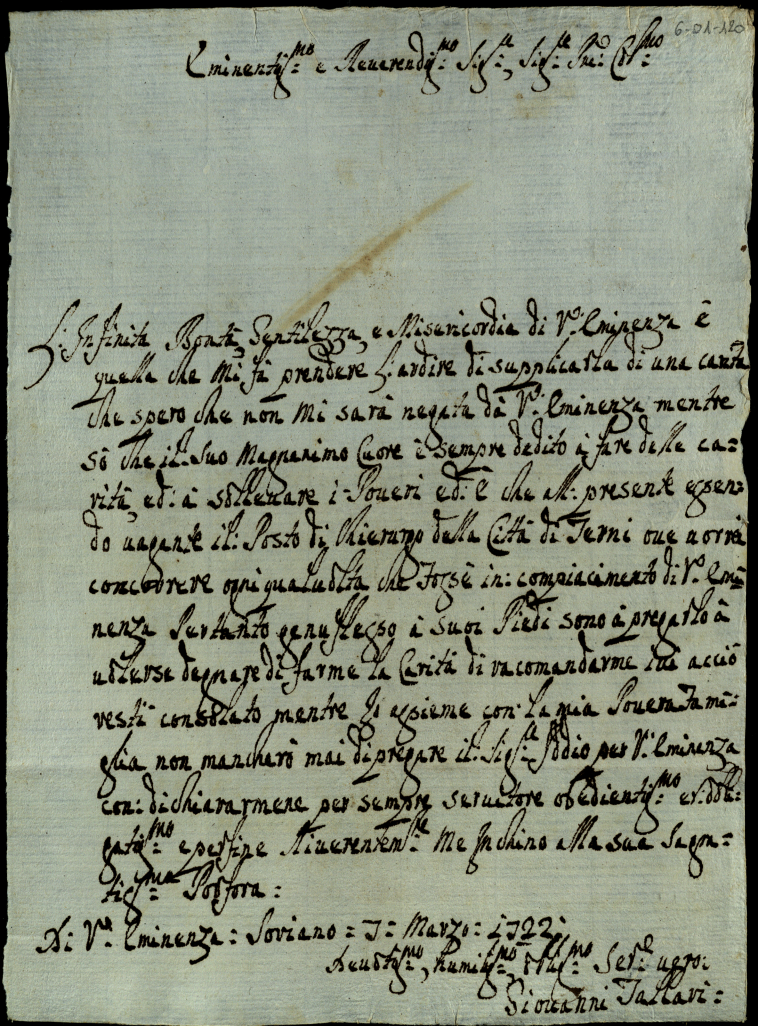 6-01-120
Eminentiss:mo e Reverendiss:mo Sig:re, Sig:re Pne: Col:mo
L: Infinita Bontà, Gentilezza, e Misericordia di V:a Eminenza è
quella che Mi fà prendere L: ardire di supplicarla di una carità
che spero che non Mi sarà negata dà V:a Eminenza mentre
sò che il: Suo Magnanimo Cuore è sempre dedito à fare delle ca=
rità, ed: à sollevare i: Poveri ed: è che all: presente essen=
do vagante il: Posto di Chierurgo della Città di Terni ove vorrei
concorrere ogni qualvolta che Fosse in: compiacimento di V:a Emi=
nenza Pertanto genuflesso à suoi Piedi sono à pregarlo à
volerse degnare di farme la Carità di racomandarme acciò
resti consolato mentre Io assieme con: la mia Povera Fami=
glia non mancherò mai di pregare il: Sig:re Iddio per V:a Eminenza
con: dichiararmene per sempre servitore obedientis:mo et: obli=
gatis:mo e per fine Riverentem:te Me Inchino alla sua Sagra=
tiss:ma Porpora:
D: V:a Eminenza: Soriano = 7= Marzo: 1722:
Devotis:mo, Humilis:mo, Obl:mo Ser:e vero:
Giovanni Tallavi=